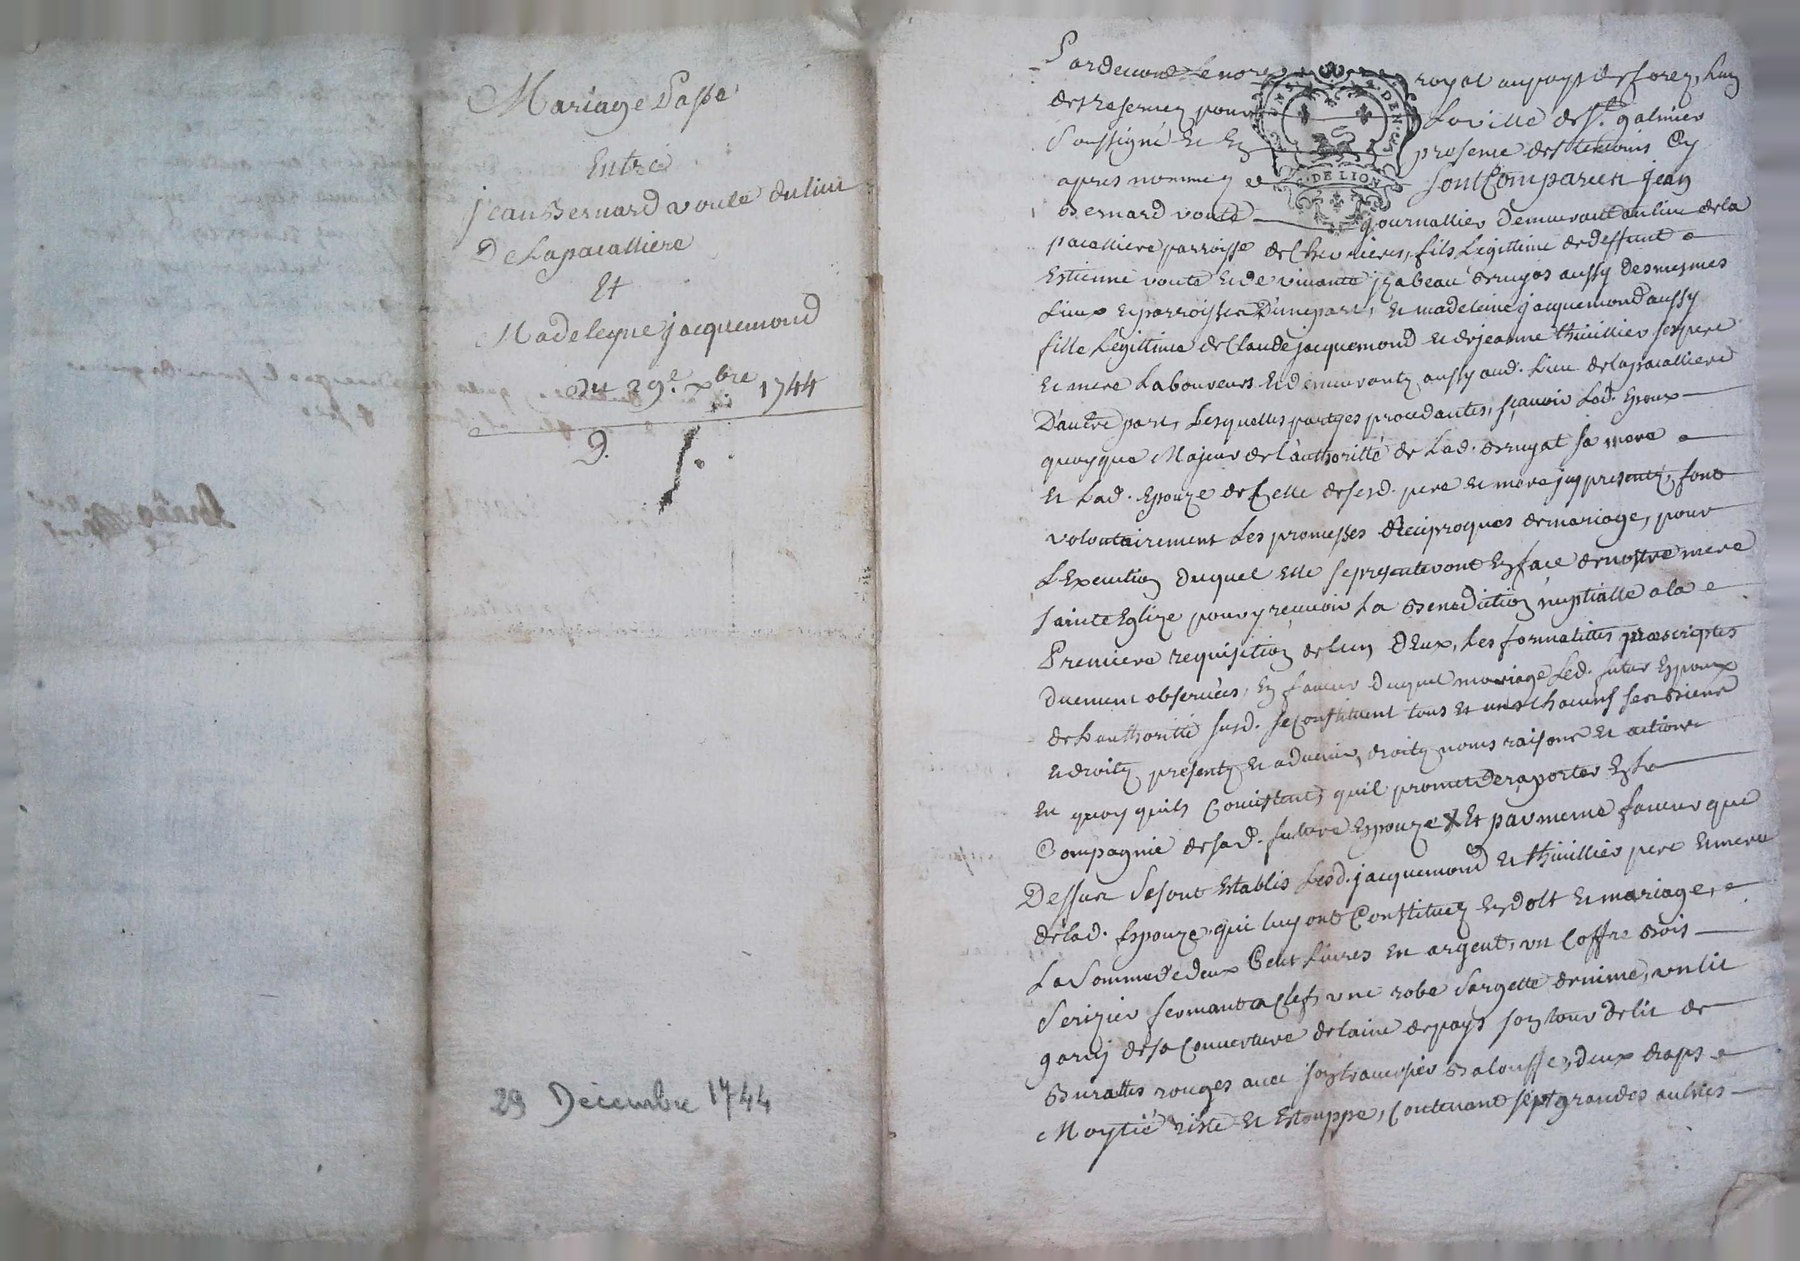 Mariage Passé
Entre
jean Bernard voute du lieu
De Lapacalliere
Et
Madeleyne jacquemond
Du 29e. xbre 1744
9.
29 Décembre 1744
Pardevant Le nore royal au pays de forez, Lun
des reservez pour La ville de St. galmier
Soussigné Et En presence des temoins Cy
apres nommez Sont Comparus jean
Bernard voute journallier demeurant au lieu de la
pacalliere parroisse de Chevrieres, fils Legittime de deffunt
Estienne voute Et de vivante jzabeau druyas aussy desmesmes
Lieux et parroisse D'une part, Et madeleine jacquemond aussy
fille Legittime de Claude jacquemond et de jeanne thuillier ses pere
Et mere Laboureurs Et demeurantz aussy aud. Lieu de lapacalliere
D'autre part, Lesquelles partyes procedantes, sçavoir Led. Epoux
quoyque Majeur de l'authoritté de Lad. druyat sa mere
Et Lad. Epouze de Celle de sesd. pere Et mere jcy presentz, font
volontairement Les promesses Reciproques de mariage, pour
L'Execution duquel Elle se presenteront En face de nostre mere
Sainte Eglize pour y reçevoir La Benediction nuptialle a la
Premiere requisition de Lun D'Eux, Les formalittés prescriptes
duement observées, En faveur duquel mariage Led. futur Epoux
de L'authoritté susd. se Constituent tous Et uns Chacuns ses Biens
et droitz presentz Et advenir, droitz noms raisons Et actions
En quoy quils Consistent, quil promet de raporter En La
Compagnie de sad. future Epouze X Et par meme faveur que
Dessus Se sont Establis Lesd. jacquemond Et thuillier pere Et mere
de lad. Espouze, qui luy ont Constituez En dolt Et mariage,
La Somme de deux Cent Livres En argent, un Coffre Bois
Serizier fermant a Clef, une robe Sargette de nime, un lit
garny de sa Couverture de laine de pays son tour de lit de
Burattes rouges avec son traversier Balouffe, deux draps
Moytié riste Et Estouppe, Contenant sept grandes aulnes